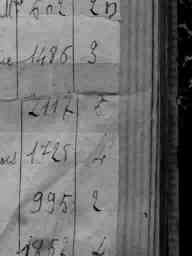 602 2
1486 3
2117 5
1725 4
995 2
1852 4